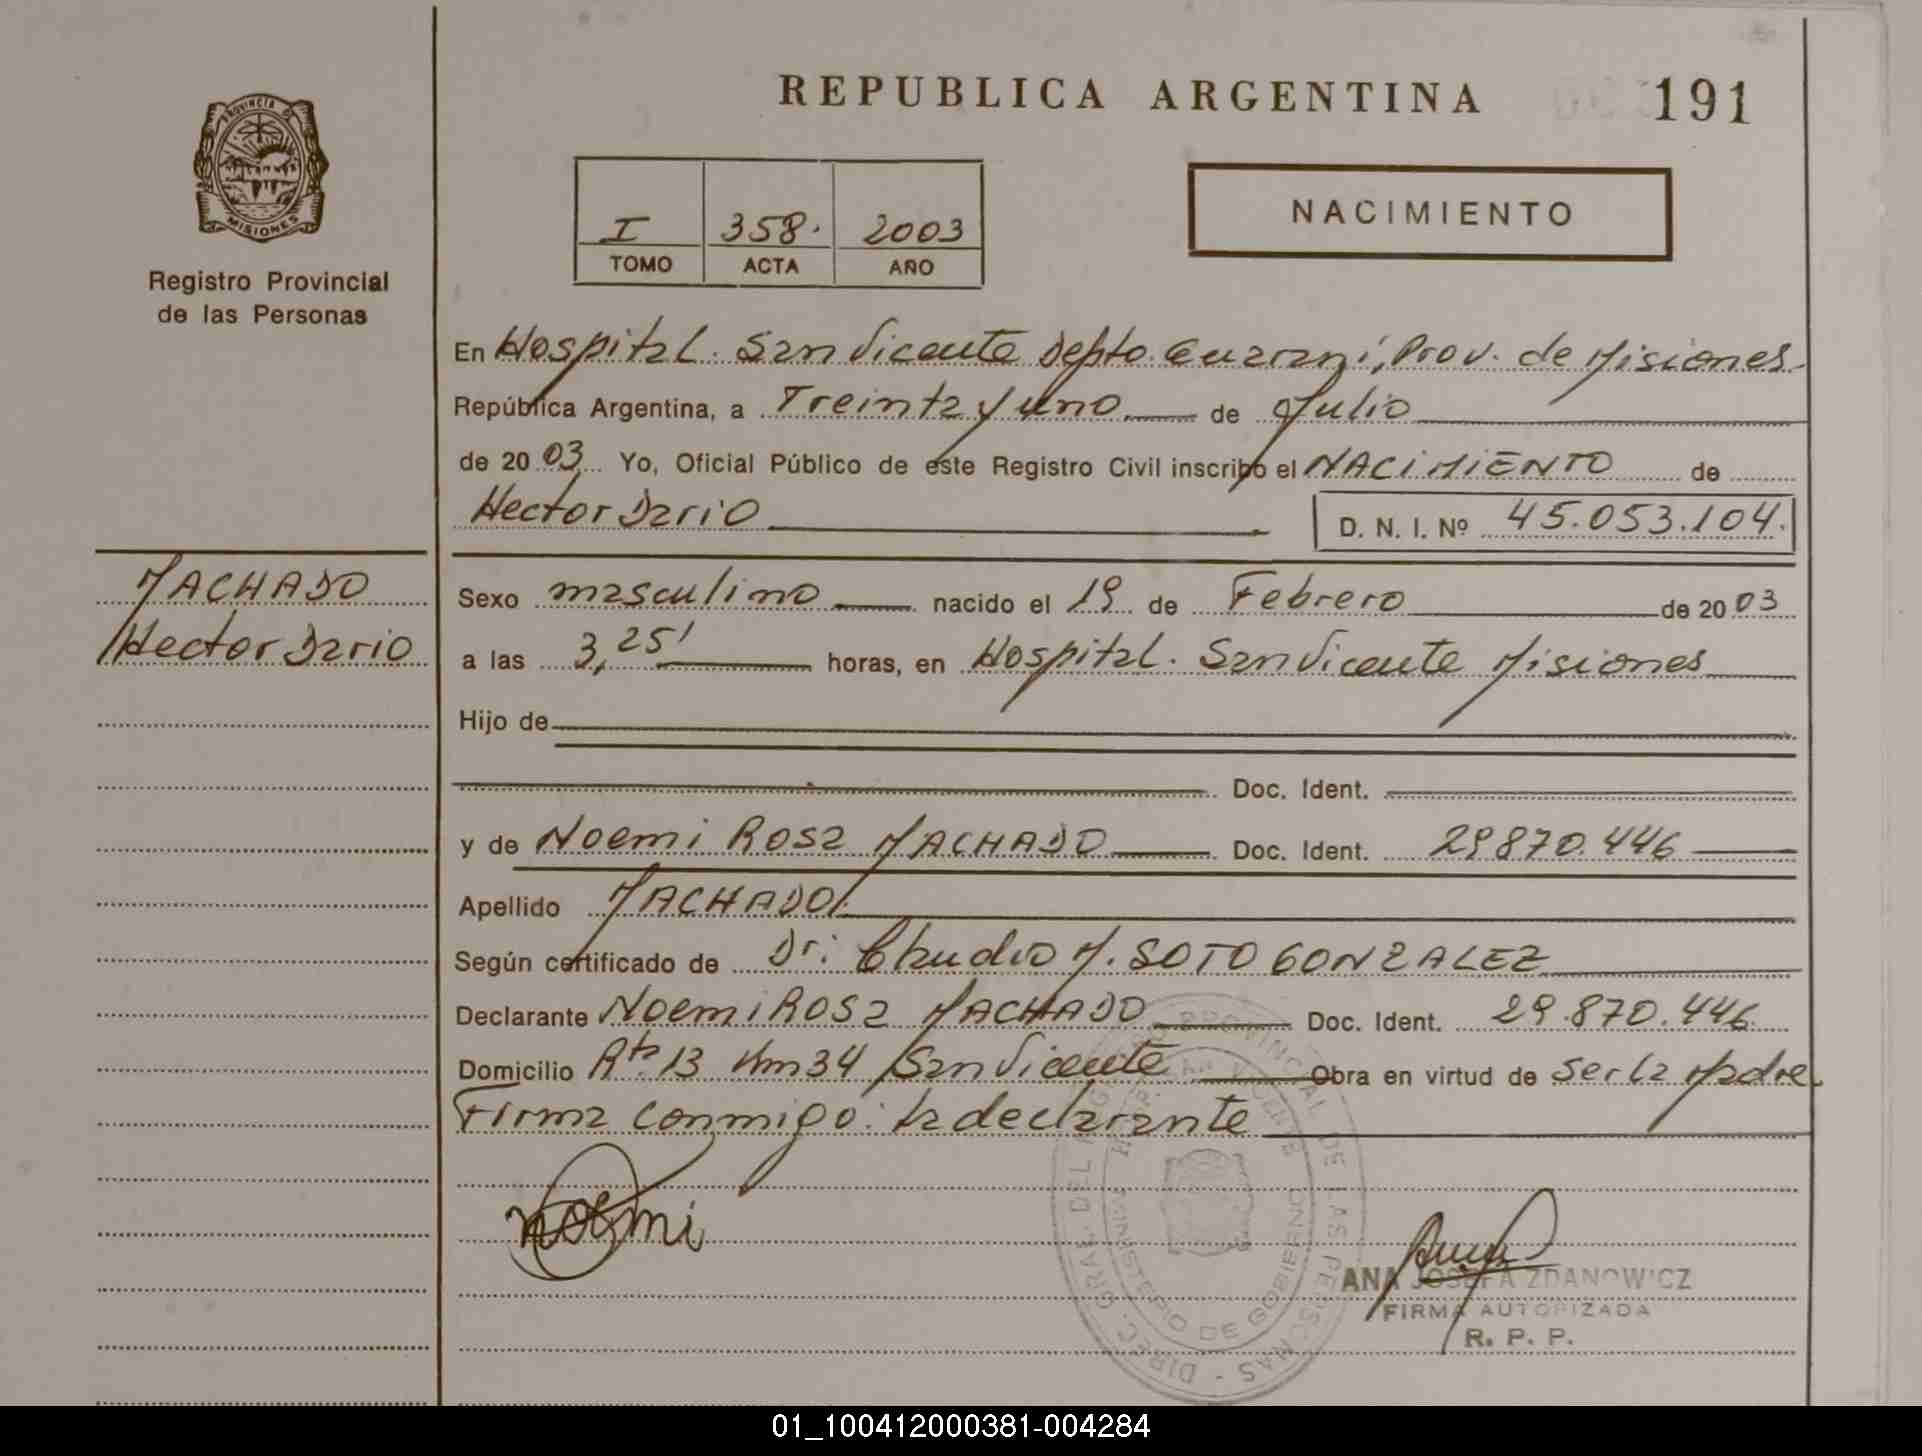 REPUBLICA ARGENTINA 191
PROVINCIA DE
MISIONES
Registro Provincial
de las Personas
I 358. 2003
TOMO ACTA AÑO
NACIMIENTO
En Hospital. San Vicente Depto. Guaraní, Prov. de Misiones
República Argentina, a Treinta y uno de Julio
de 2003 Yo, Oficial Público de este Registro Civil inscribo el NACIMIENTO de
Hector Dario D. N. I. Nº 45.053.104.
MACHADO
Hector Dario
Sexo masculino nacido el 19 de Febrero de 2003
a las 3,25' horas, en Hospital. San Vicente Misiones
Hijo de
Doc. Ident.
y de Noemi Rosa MACHADO Doc. Ident. 29870.446
Apellido MACHADO.
Según certificado de Dr: Claudio M. SOTO GONZALEZ
Declarante Noemi Rosa MACHADO Doc. Ident. 29.870.446
Domicilio Rta. 13 Km 34 San Vicente Obra en virtud de ser la Madre
Firma conmigo: la declarante
noemi
DIREC. GRAL. DEL REGISTRO PROVINCIAL DE LAS PERSONAS
MINISTERIO DE GOBIERNO
SAN VICENTE
ANA JOSEFA ZDANOWICZ
FIRMA AUTORIZADA
R. P. P.
01_100412000381-004284